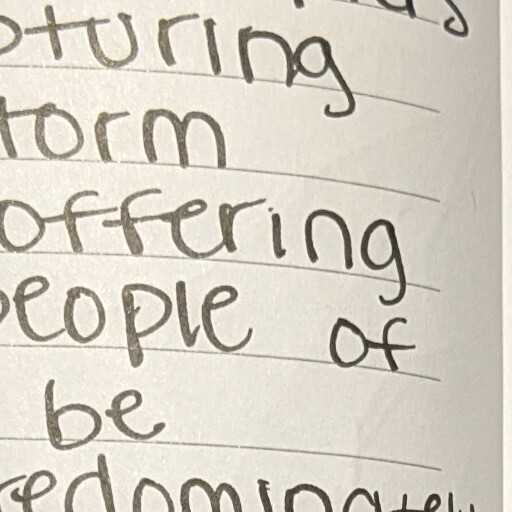 pturing
form
offering
people of
be
redominately